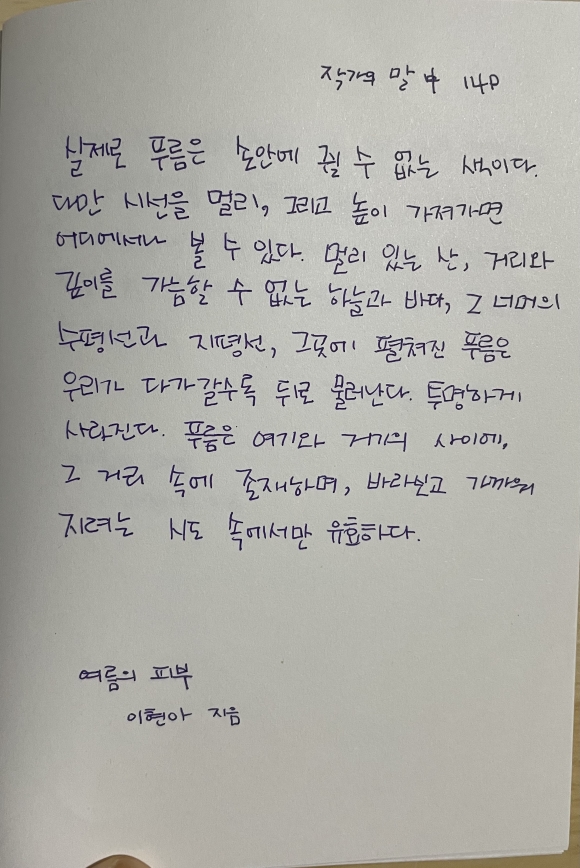 작가의 말 中 14p
실제로 푸름은 손안에 쥘 수 없는 색이다.
다만 시선을 멀리, 그리고 높이 가져가면
어디에서나 볼 수 있다. 멀리 있는 산, 거리와
깊이를 가늠할 수 없는 하늘과 바다, 그 너머의
수평선과 지평선, 그곳에 펼쳐진 푸름은
우리가 다가갈수록 뒤로 물러난다. 투명하게
사라진다. 푸름은 여기와 거기의 사이에,
그 거리 속에 존재하며, 바라보고 가까워
지려는 시도 속에서만 유효하다.
여름의 피부
이현아 지음